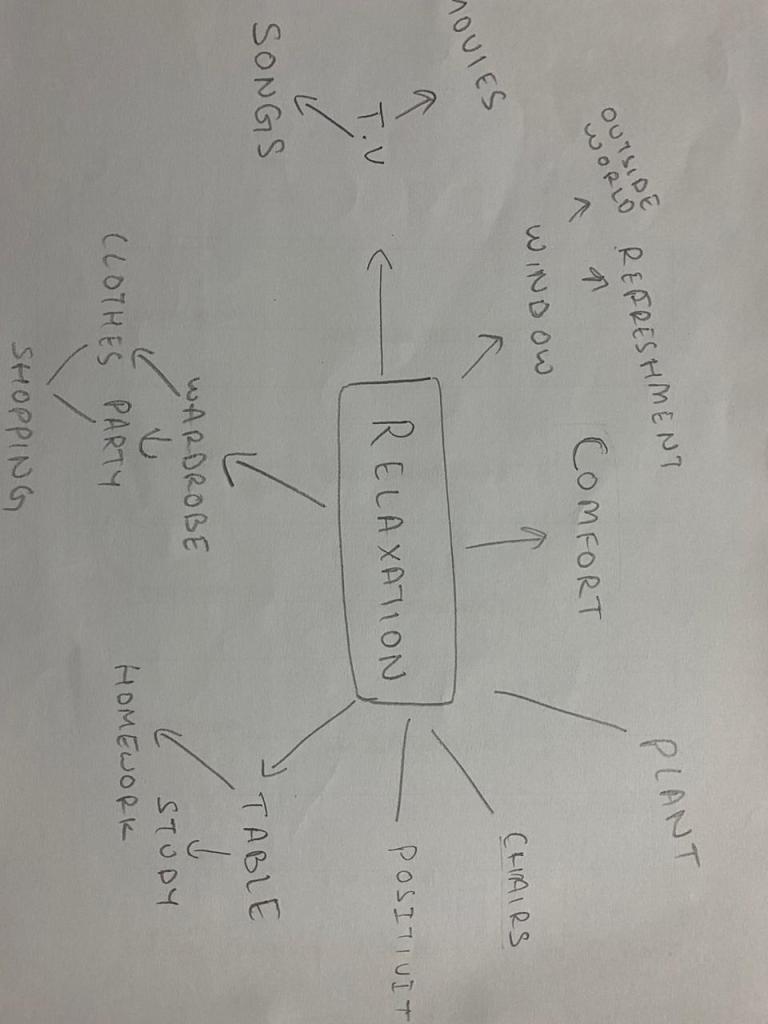 OUTSIDE
WORLD
REFRESHMENT
PLANT
MOVIES
WINDOW
COMFORT
CHAIRS
T.V
RELAXATION
POSITIVIT
SONGS
WARDROBE
TABLE
CLOTHES
PARTY
STUDY
HOMEWORK
SHOPPING